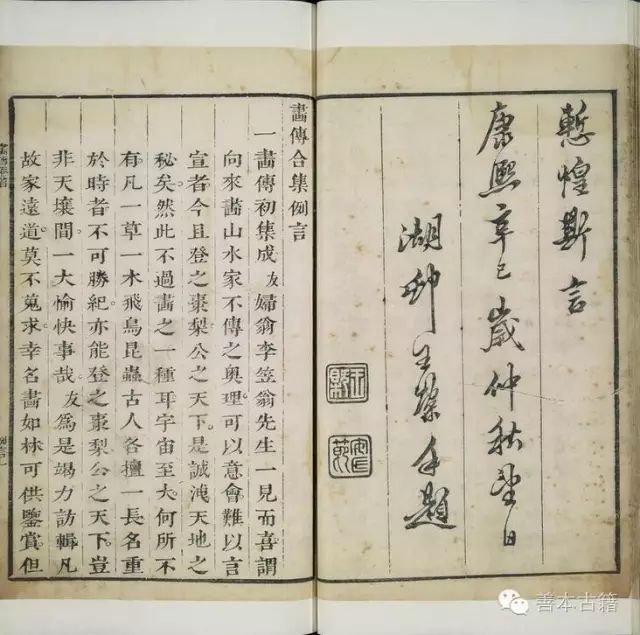 慙惶斯言
康熙辛巳歲仲秋望日
湖邨王槩手題
畫傳合集例言
一畫傳初集成友婦翁李笠翁先生一見而喜謂
向來畫山水家不傳之奧理可以意會難以言
宣者今且登之棗梨公之天下是誠洩天地之
秘矣然此不過畫之一種耳宇宙至大何所不
有凡一草一木飛鳥昆蟲古人各擅一長名重
於時者不可勝紀亦能登之棗梨公之天下豈
非天壤間一大愉快事哉友爲是竭力訪輯凡
故家遠道莫不蒐求幸名畫如林可供鑒賞但
善本古籍